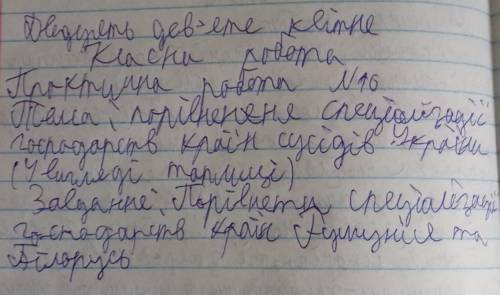 Двадцять дев'яте квітне
Класна робота
Практична робота №16
Тема: порівнення спеціалізації
господарств країн сусідів України
(У вигляді таблиці)
Завдання. Порівнети спеціалізаці
господарств країн Румунія та
Білорусь